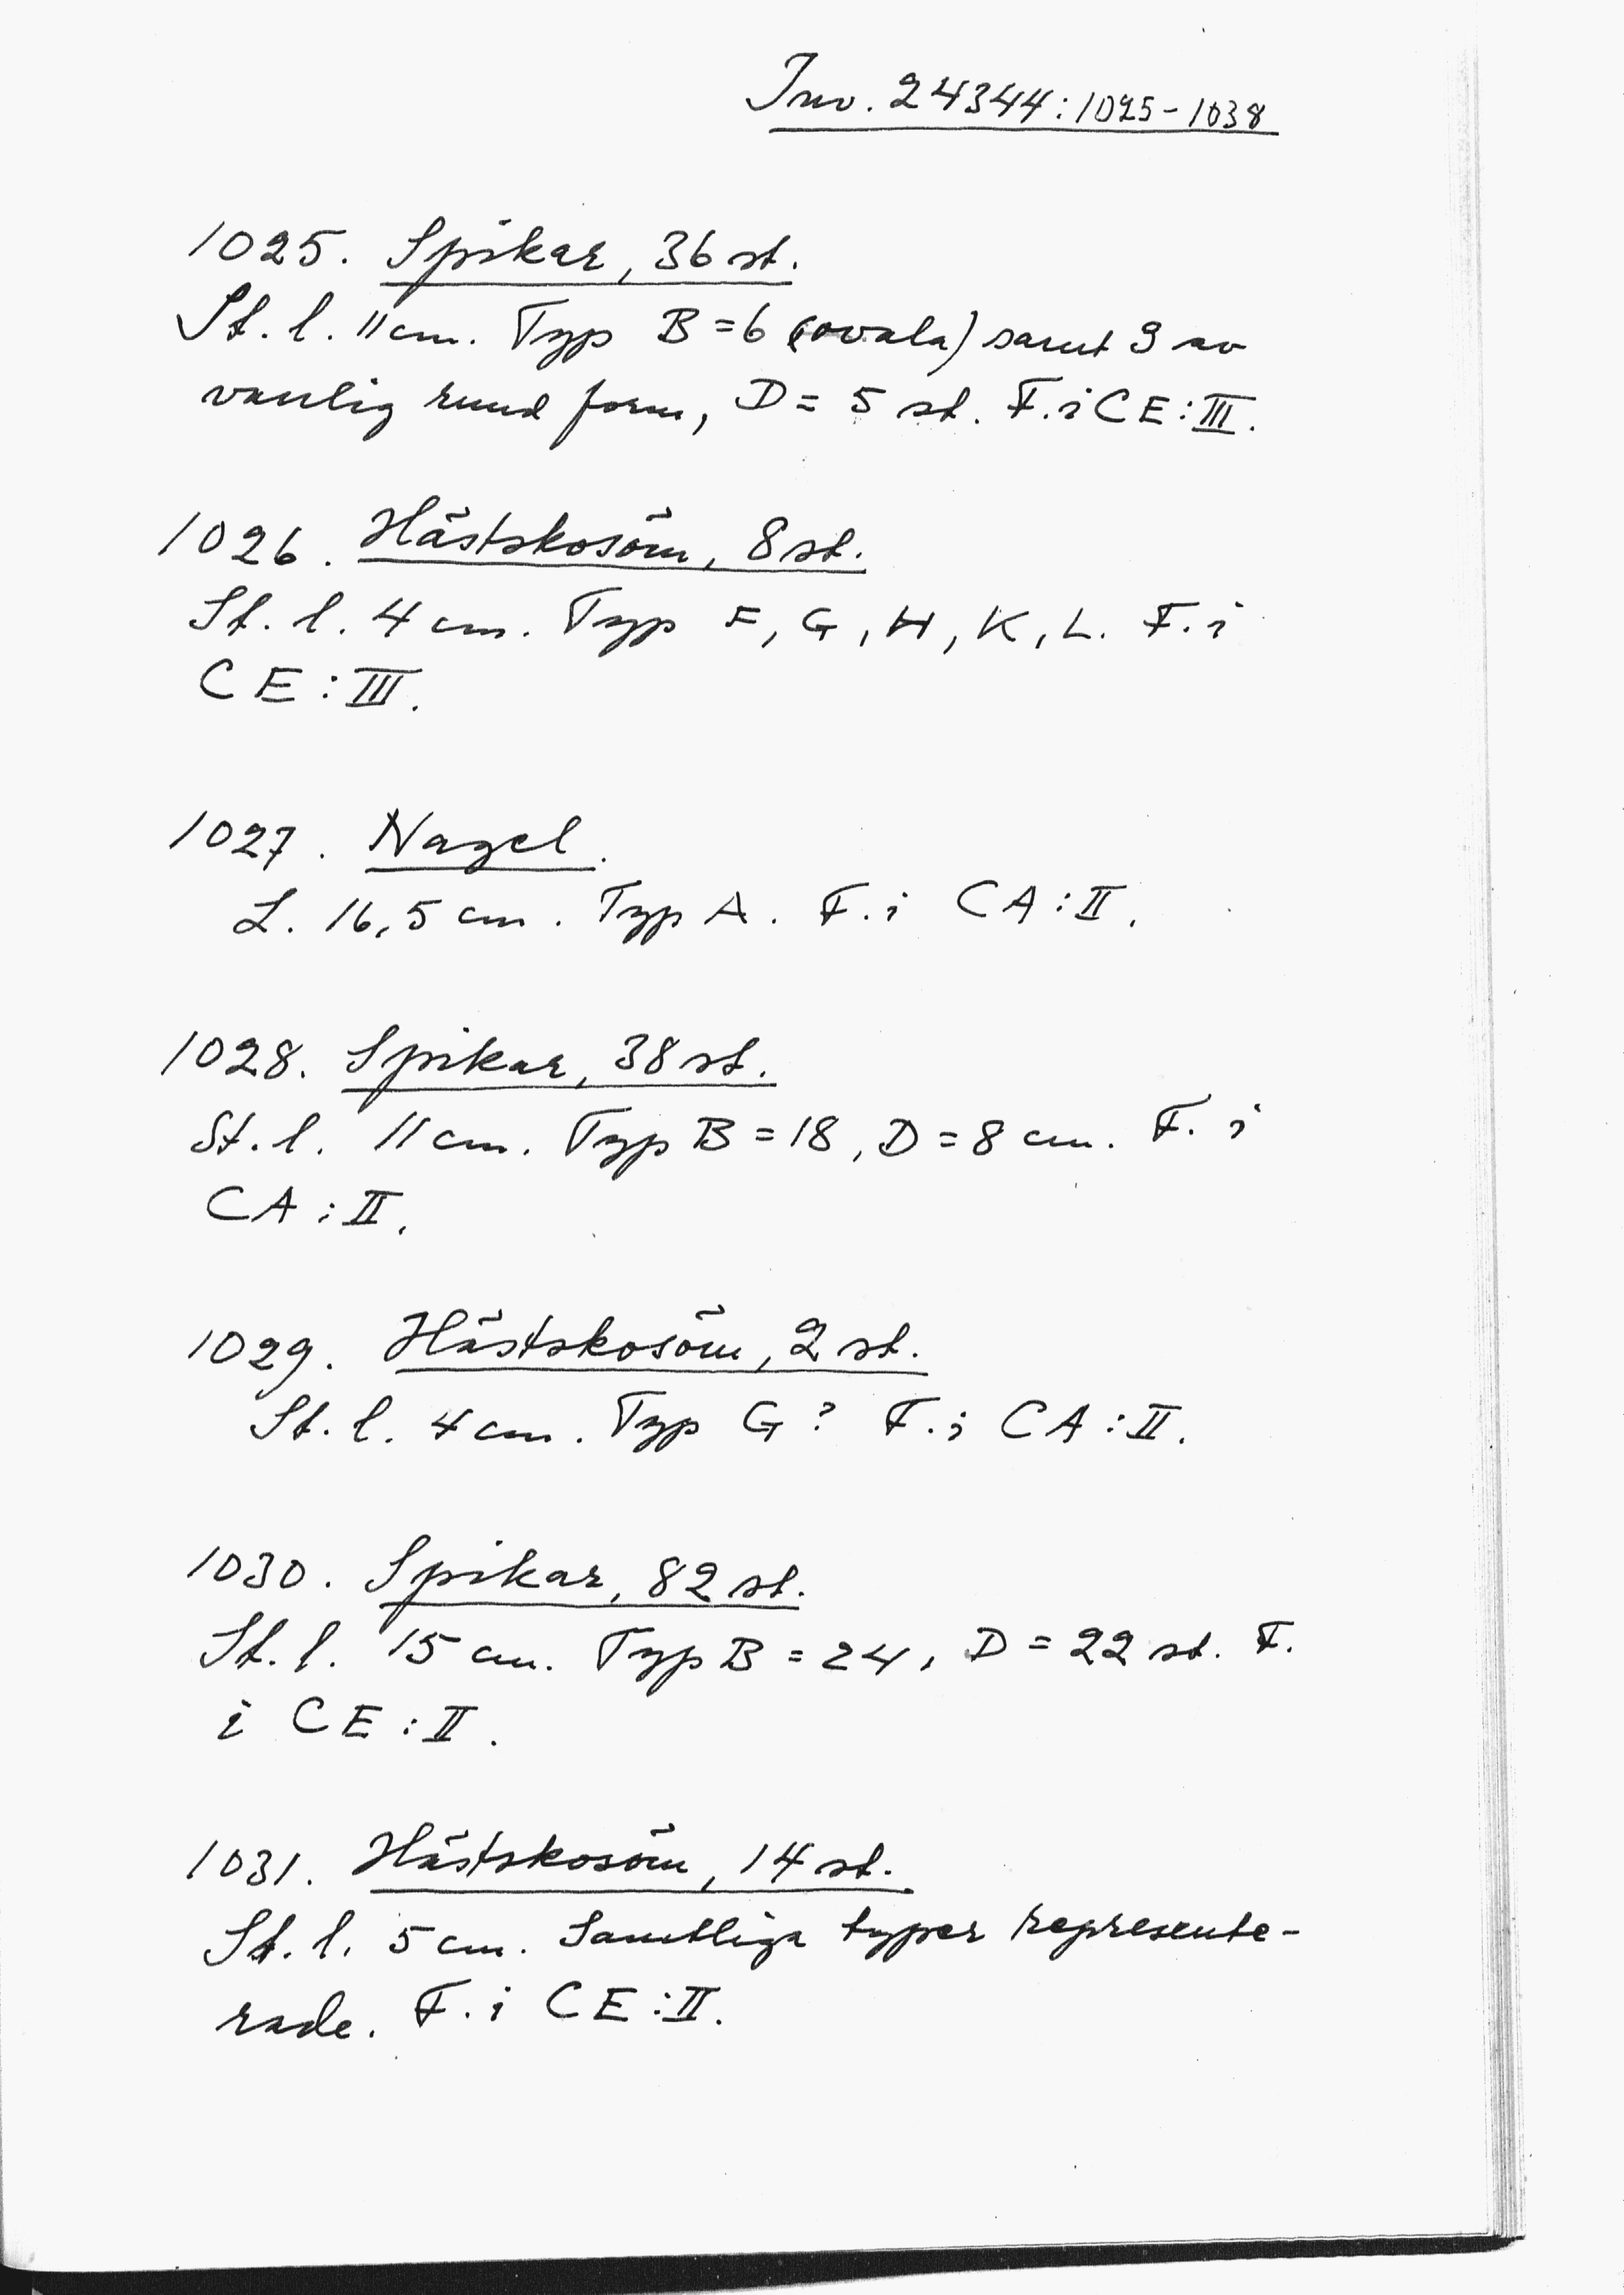 Inv. 24344:1025-1038
1025. Spikar, 36 st.
St. l. 11 cm. Typ B=6 (ovala) samt 9 av
vanlig rund form, D=5 st. F. i CE:III.
1026. Hästskosöm, 8 st.
St. l. 4 cm. Typ F, G, H, K, L. F. i
CE:III.
1027. Nagel.
L. 16,5 cm. Typ A. F. i CA:II.
1028. Spikar, 38 st.
St. l. 11 cm. Typ B=18, D=8 cm. F. i
CA:II.
1029. Hästskosöm, 2 st.
St. l. 4 cm. Typ G? F. i CA:II.
1030. Spikar, 82 st.
St. l. 15 cm. Typ B=24, D=22 st. F.
i CE:II.
1031. Hästskosöm, 14 st.
St. l. 5 cm. Samtliga typer represente-
rade. F. i CE:II.